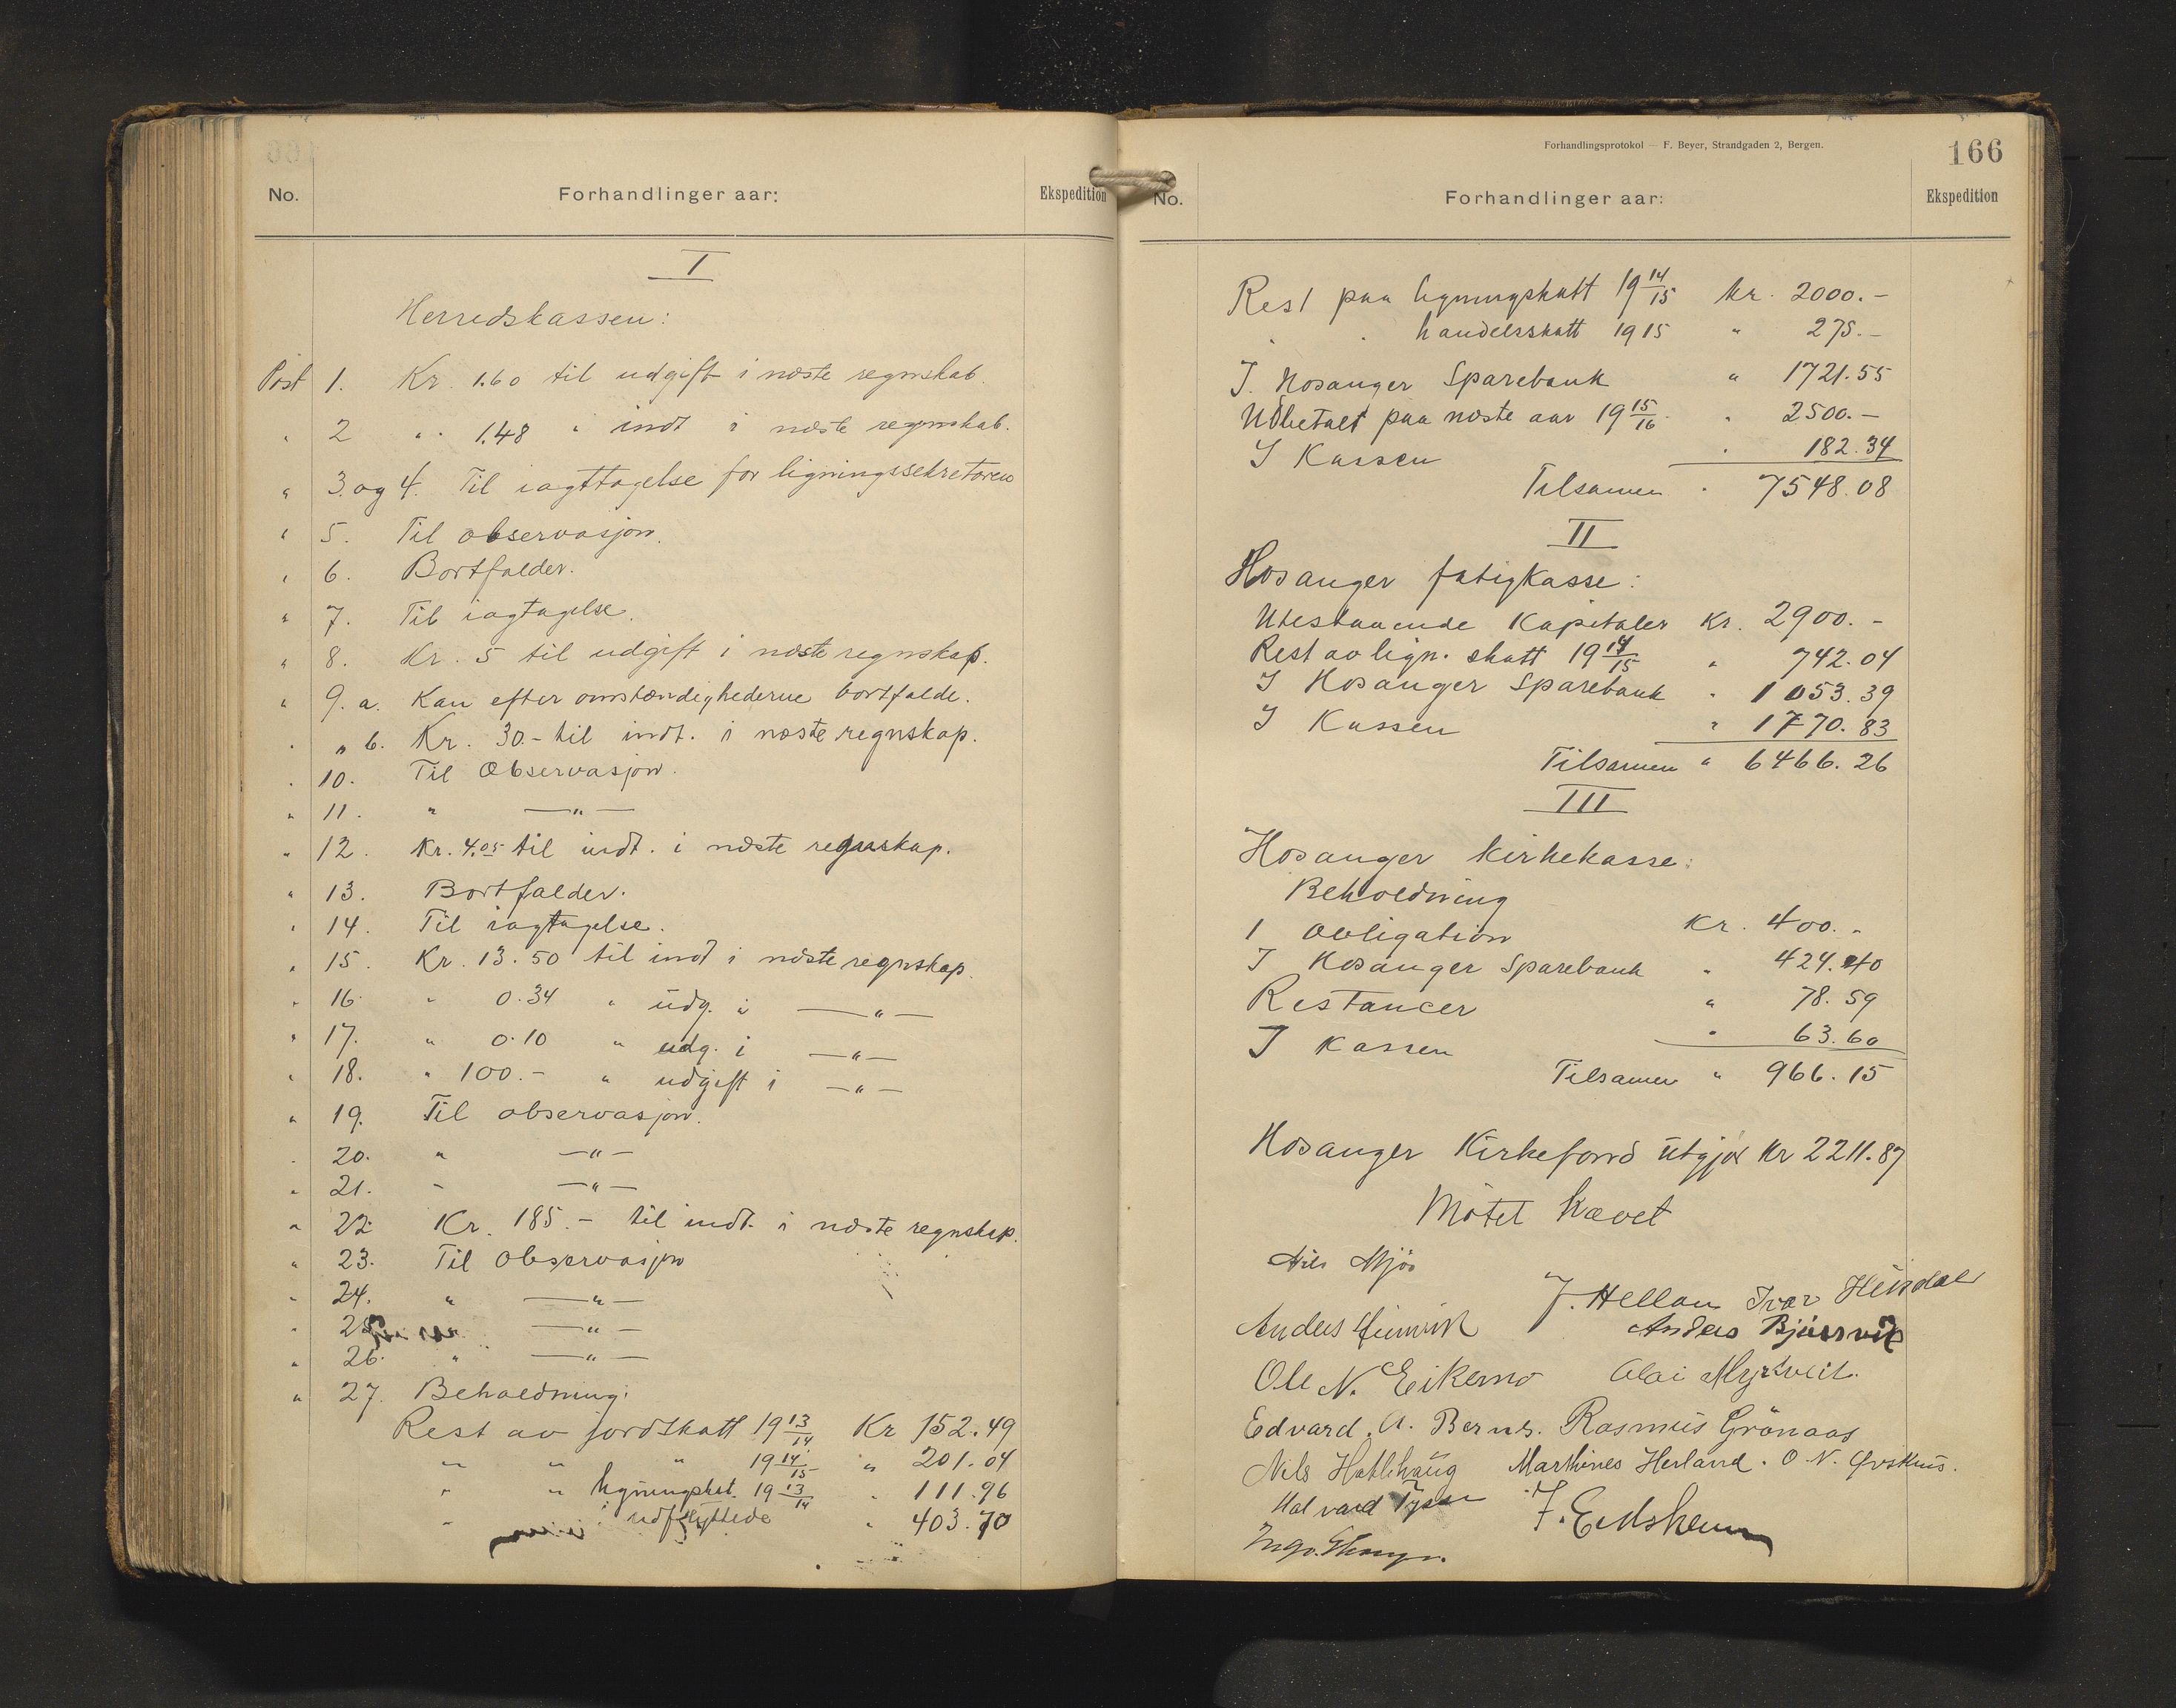 No.
Forhandlinger aar:
Ekspedition
I
Herredskassen:
Post 1. Kr. 1.60 til udgift i næste regnskab.
" 2 " 1.48 " indt i næste regnskab.
" 3. og 4. Til iagttagelse for ligningssekretæren
" 5. Til observasjon.
" 6. Bortfalder.
" 7. Til iagtagelse.
" 8. Kr. 5 til udgift i næste regnskap.
" 9. a. Kan efter omstændighederne bortfalde.
" " b. Kr. 30.- til indt. i næste regnskap.
" 10. Til Observasjon.
" 11. " —"—
" 12. Kr. 4.05 til indt. i næste regnskap.
" 13. Bortfalder.
" 14. Til iagtagelse.
" 15. Kr. 13.50 til indt i næste regnskap.
" 16. " 0.34 " udg. i —"—
" 17. " 0.10 " udg. i —"—
" 18. " 100.- " udgift i —"—
" 19. Til observasjon.
" 20. " —"—
" 21. " —"—
" 22 Kr. 185.- til indt. i næste regnskap.
" 23. Til Observasjon
" 24. " —"—
" 25. " —"—
" 26. " —"—
" 27. Beholdning:
Rest av jordskatt 19 13/14 Kr 152.49
" " " 19 14/15 " 201.04
" " ligningskat. 19 13/14 " 111.96
" " udflyttede " 403.70
Forhandlingsprotokol — F. Beyer, Strandgaden 2, Bergen.
166
No.
Forhandlinger aar:
Ekspedition
Rest paa ligningskatt 19 14/15 kr. 2000.-
" " handelsskatt 1915 " 275.-
I. Hosanger Sparebank " 1721.55
Udbetalt paa næste aar 19 15/16 " 2500.-
I Kassen " 182.34
Tilsamen " 7548.08
II
Hosanger fatigkasse:
Utestaaende Kapitaler Kr. 2900.-
Rest av lign. skatt 19 14/15 " 742.04
I Hosanger Sparebank " 1053.39
I Kassen " 1770.83
Tilsamen " 6466.26
III
Hosanger kirkekasse:
Beholdning
1 Obligation Kr. 400.-
I Hosanger Sparebank " 424.40
Restancer " 78.59
I kassen " 63.60
Tilsamen " 966.15
Hosanger Kirkefond utgjør Kr 2211.87
Møtet hævet
Nils Mjøs
J. Helland Ivar Heindal
Anders
Anders Bjørsvik
Ole N. Eikemo
Olai Myrtveit.
Edvard. A. Bernes. Rasmus Grönaas
Nils Hatlehaug Marthines Herland. O. N.
Halvard Tysse
J. Eidsheim